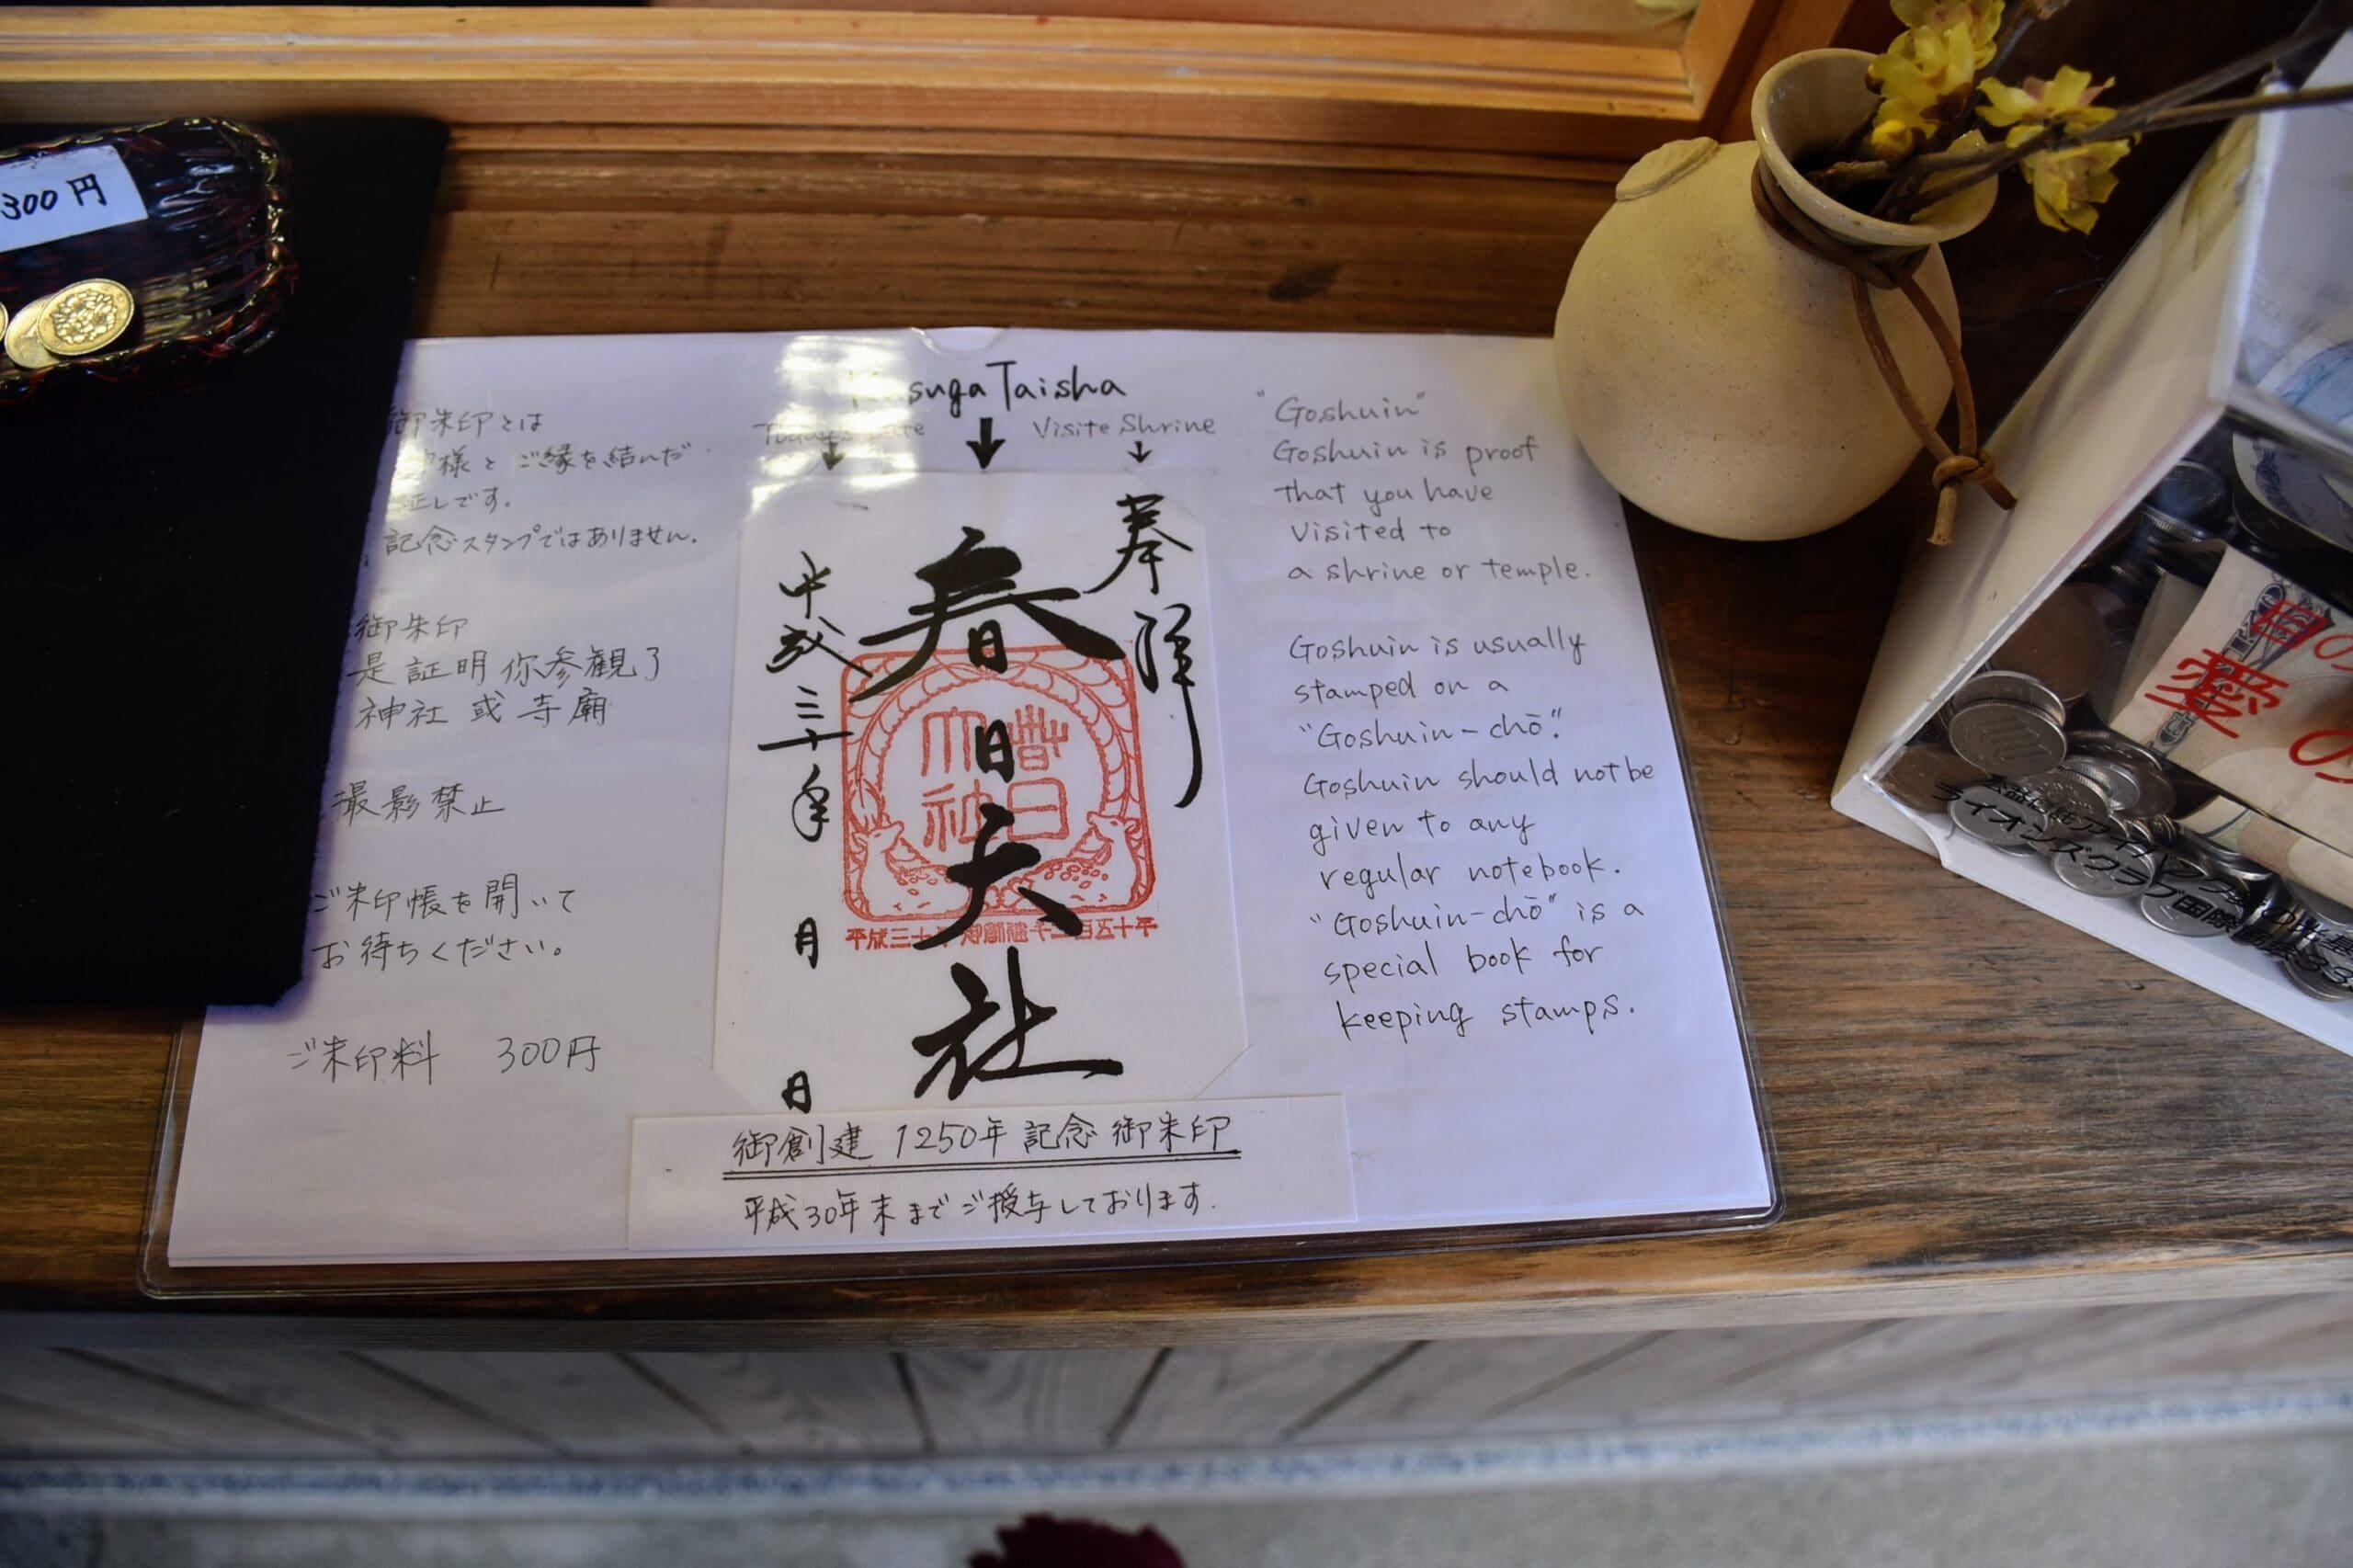 300円
御朱印とは
様とご縁を結んだ
証しです。
記念スタンプではありません。
御朱印
是証明你参観了
神社或寺廟
撮影禁止
ご朱印帳を開いて
お待ちください。
ご朱印料 300円
Kasuga Taisha
Today's Date
Visite Shrine
奉拝
春日大社
平成三十年 月 日
春日
大社
平成三十年 御創建千二百五十年
御創建 1250年 記念 御朱印
平成30年末までご授与しております.
"Goshuin"
Goshuin is proof
that you have
Visited to
a shrine or temple.
Goshuin is usually
stamped on a
"Goshuin-chō".
Goshuin should not be
given to any
regular notebook.
"Goshuin-chō" is a
special book for
keeping stamps.
愛の
ライオンズクラブ国際